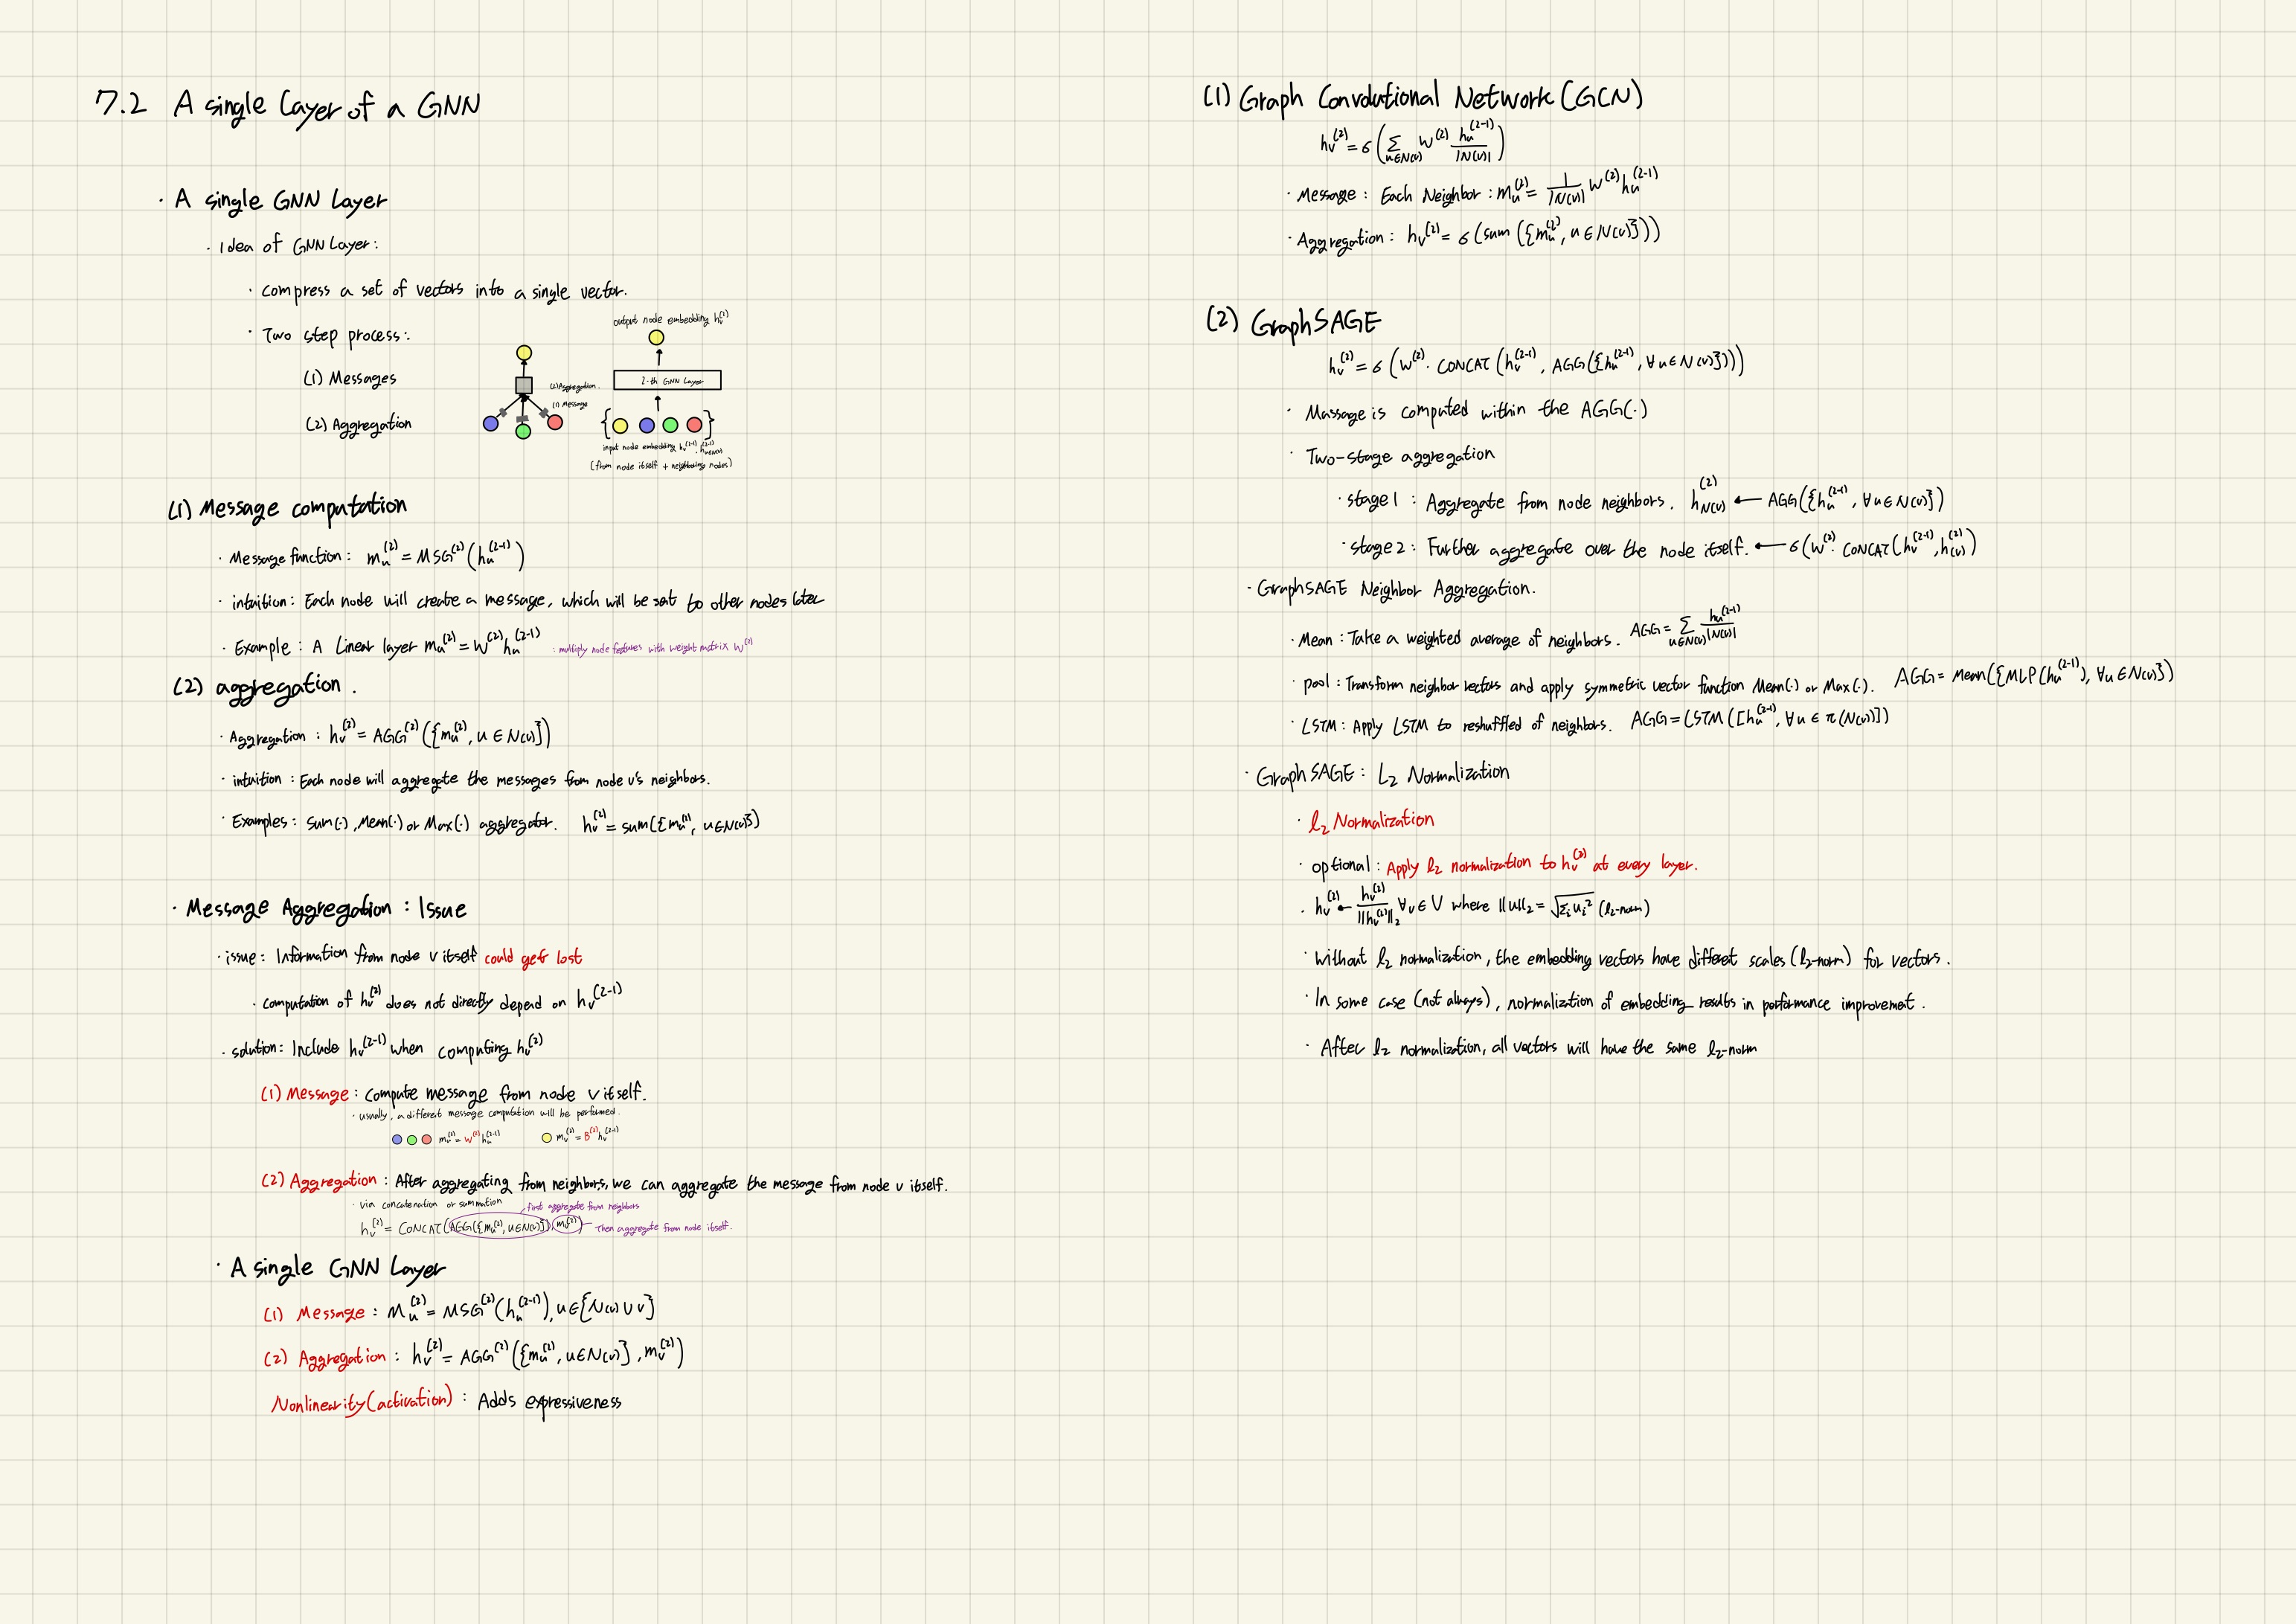 7.2 A single Layer of a GNN
· A single GNN Layer
· Idea of GNN Layer:
· compress a set of vectors into a single vector.
· Two step process:
(1) Messages
(2) Aggregation
(2) Aggregation.
(1) Message
output node embedding h_v^(l)
l-th GNN Layer
input node embedding h_v^(l-1), h_{u∈N(v)}^(l-1)
(from node itself + neighboring nodes)
(1) Message computation
· Message function: m_u^(l) = MSG^(l)(h_u^(l-1))
· intuition: Each node will create a message, which will be sent to other nodes later
· Example: A Linear layer m_u^(l) = W^(l) h_u^(l-1) : multiply node features with weight matrix W^(l)
(2) aggregation.
· Aggregation: h_v^(l) = AGG^(l)({m_u^(l), u∈N(v)})
· intuition: Each node will aggregate the messages from node v's neighbors.
· Examples: Sum(·), Mean(·) or Max(·) aggregator. h_v^(l) = sum({m_u^(l), u∈N(v)})
· Message Aggregation: Issue
· issue: Information from node v itself could get lost
· computation of h_v^(l) does not directly depend on h_v^(l-1)
· solution: Include h_v^(l-1) when computing h_v^(l)
(1) Message: compute message from node v itself.
· usually, a different message computation will be performed.
m_u^(l) = W^(l) h_u^(l-1) m_v^(l) = B^(l) h_v^(l-1)
(2) Aggregation: After aggregating from neighbors, we can aggregate the message from node v itself.
· via concatenation or summation
first aggregate from neighbors
h_v^(l) = CONCAT(AGG({m_u^(l), u∈N(v)}), m_v^(l)) Then aggregate from node itself.
· A single GNN Layer
(1) Message: m_u^(l) = MSG^(l)(h_u^(l-1)), u∈{N(v)∪v}
(2) Aggregation: h_v^(l) = AGG^(l)({m_u^(l), u∈N(v)}, m_v^(l))
Nonlinearity (activation): Adds expressiveness
(1) Graph Convolutional Network (GCN)
h_v^(l) = σ(Σ_{u∈N(v)} W^(l) h_u^(l-1) / |N(v)|)
· Message: Each Neighbor: m_u^(l) = 1/|N(v)| W^(l) h_u^(l-1)
· Aggregation: h_v^(l) = σ(sum({m_u^(l), u∈N(v)}))
(2) GraphSAGE
h_v^(l) = σ(W^(l)· CONCAT(h_v^(l-1), AGG({h_u^(l-1), ∀u∈N(v)})))
· Massage is computed within the AGG(·)
· Two-stage aggregation
· stage 1: Aggregate from node neighbors. h_N(v)^(l) ← AGG({h_u^(l-1), ∀u∈N(v)})
· stage 2: Further aggregate over the node itself. ← σ(W^(l)· CONCAT(h_v^(l-1), h_(v)^(l))
· GraphSAGE Neighbor Aggregation.
· Mean: Take a weighted average of neighbors. AGG = Σ_{u∈N(v)} h_u^(l-1) / |N(v)|
· pool: Transform neighbor vectors and apply symmetric vector function Mean(·) or Max(·). AGG = Mean({MLP(h_u^(l-1)), ∀u∈N(v)})
· LSTM: Apply LSTM to reshuffled of neighbors. AGG = LSTM([h_u^(l-1), ∀u∈π(N(v))])
· GraphSAGE: L2 Normalization
· l2 Normalization
· optional: Apply l2 normalization to h_v^(l) at every layer.
· h_v^(l) ← h_v^(l) / ||h_v^(l)||_2 ∀v∈V where ||u||_2 = √Σ_i u_i^2 (l2-norm)
· Without l2 normalization, the embedding vectors have different scales (l2-norm) for vectors.
· In some case (not always), normalization of embedding results in performance improvement.
· After l2 normalization, all vectors will have the same l2-norm